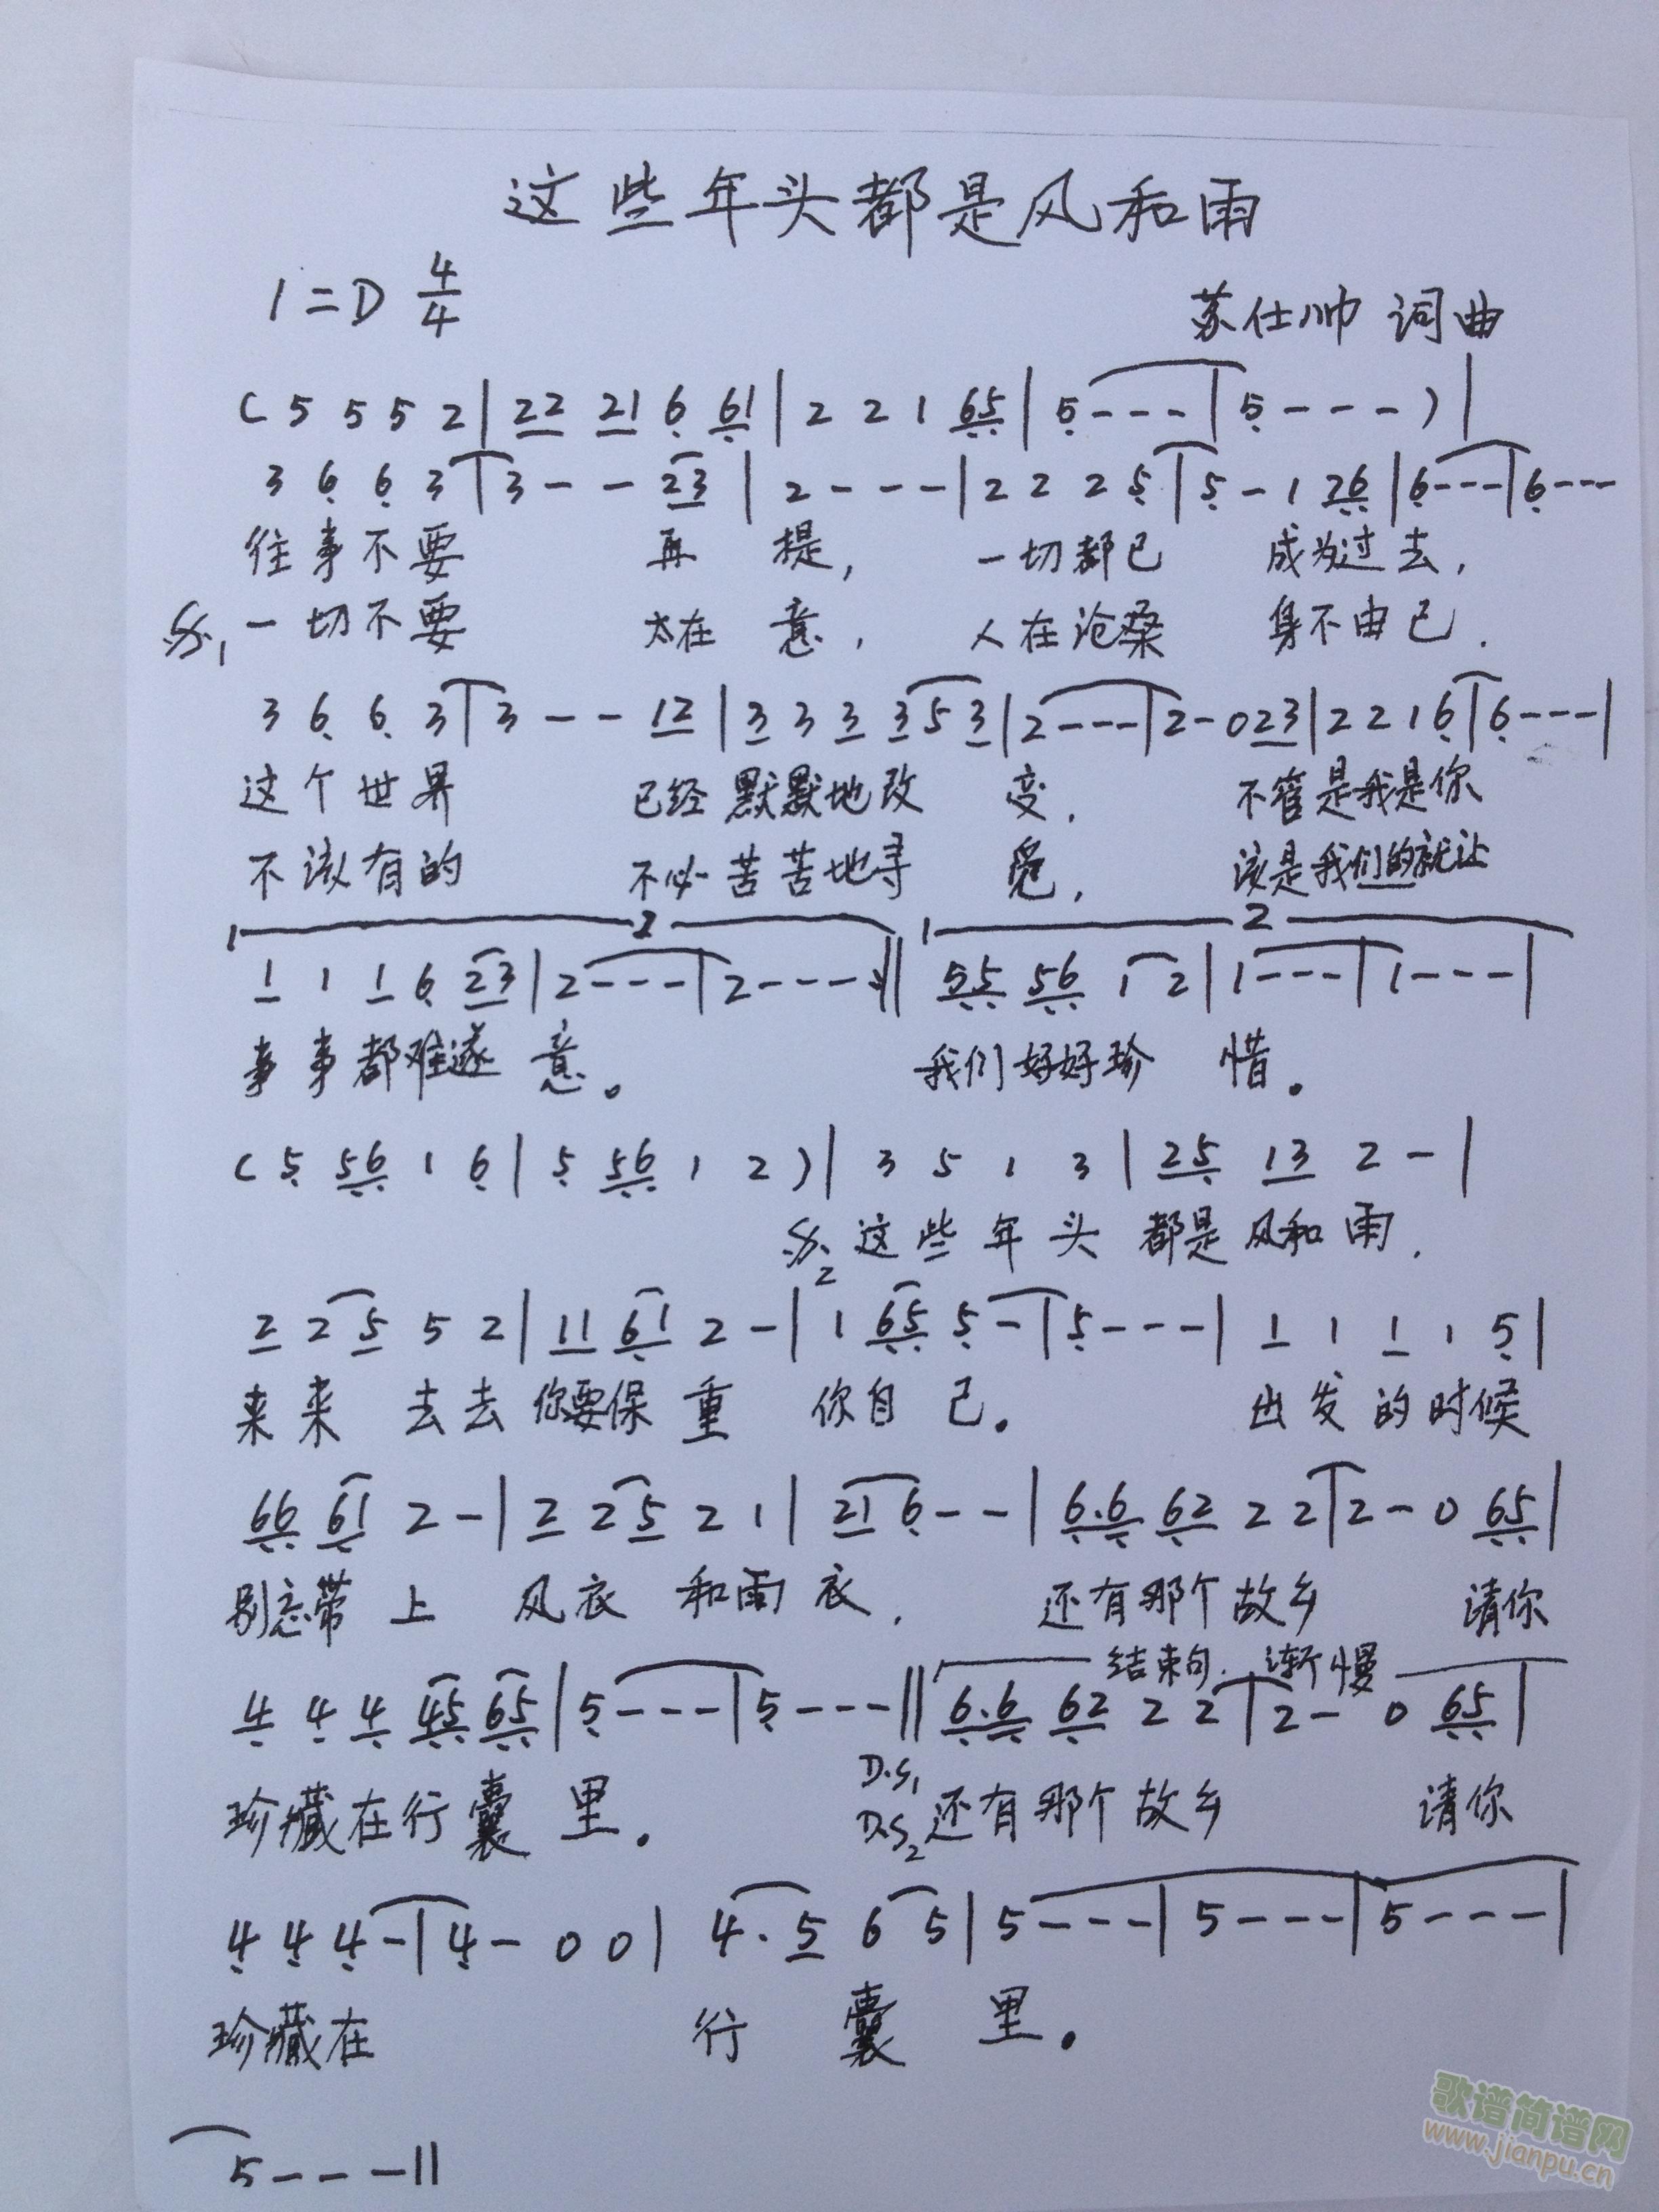 这些年头都是风和雨
1=D 4/4
苏仕帅 词曲
( 5 5 5 2 | 22 21 6 61 | 2 2 1 65 | 5 - - - | 5 - - - ) |
3 6 6 3 | 3 - - 23 | 2 - - - | 2 2 2 5 | 5 - 1 26 | 6 - - - | 6 - - -
往事不要 再 提, 一切都已 成为过去,
𝄋1 一切不要 太在 意, 人在沧桑 身不由己.
3 6 6 3 | 3 - - 12 | 3 3 3 3 5 3 | 2 - - - | 2 - 0 23 | 2 2 1 6 | 6 - - - |
这个世界 已经默默地改 变, 不管是我是你
不该有的 不必苦苦地寻 觅, 该是我们的就让
1 2
1 1 1 6 23 | 2 - - - | 2 - - - :|| 55 56 1 2 | 1 - - - | 1 - - - |
事事都难遂 意。 我们好好珍 惜。
( 5 56 1 6 | 5 56 1 2 ) | 3 5 1 3 | 25 13 2 - |
𝄋2 这些年头 都是风和雨.
2 2 5 5 2 | 11 61 2 - | 1 65 5 - | 5 - - - | 1 1 1 1 5 |
来来 去去你要保重 你自己。 出发的时候
66 61 2 - | 2 2 5 2 1 | 21 6 - - | 6.6 62 2 2 | 2 - 0 65 |
别忘带 上 风衣 和雨衣. 还有那个故乡 请你
结束句. 渐慢
4 4 4 45 65 | 5 - - - | 5 - - - || 6.6 62 2 2 | 2 - 0 65 |
D.S1
珍藏在行囊里。 D.S2 还有那个故乡 请你
4 4 4 - | 4 - 0 0 | 4. 5 6 5 | 5 - - - | 5 - - - | 5 - - - |
珍藏在 行 囊 里。
5 - - - ||
歌谱简谱网
www.jianpu.cn